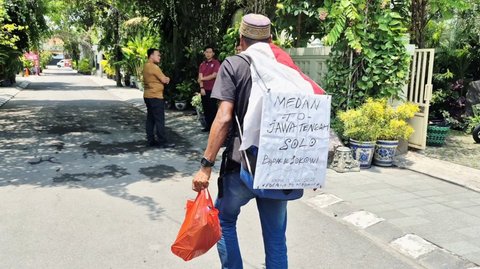 MEDAN
-TO-
JAWA TENGAH
SOLO
BAPAK JOKOWI